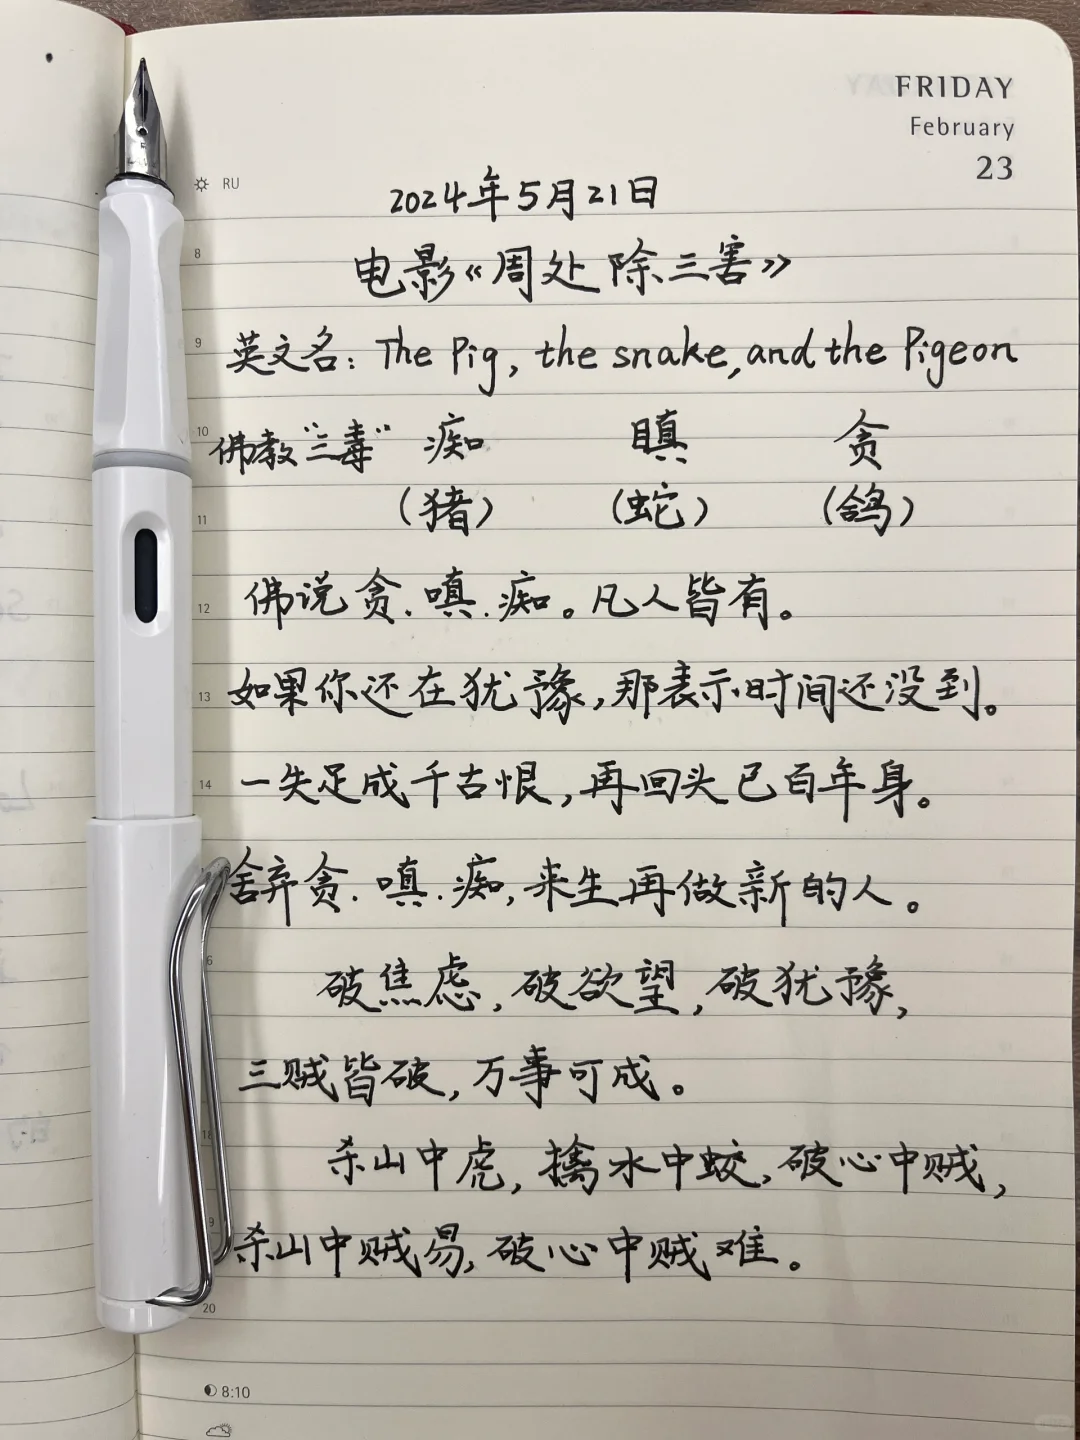 FRIDAY
February
23
RU
2024年5月21日
8
电影《周处除三害》
9
英文名：The Pig, the snake, and the Pigeon
10
佛教“三毒” 痴 瞋 贪
11
(猪) (蛇) (鸽)
12
佛说贪.嗔.痴。凡人皆有。
13
如果你还在犹豫，那表示时间还没到。
14
一失足成千古恨，再回头已百年身。
舍弃贪.嗔.痴，来生再做新的人。
6
破焦虑，破欲望，破犹豫，
三贼皆破，万事可成。
18
杀山中虎，擒水中蛟，破心中贼，
9
杀山中贼易，破心中贼难。
20
8:10